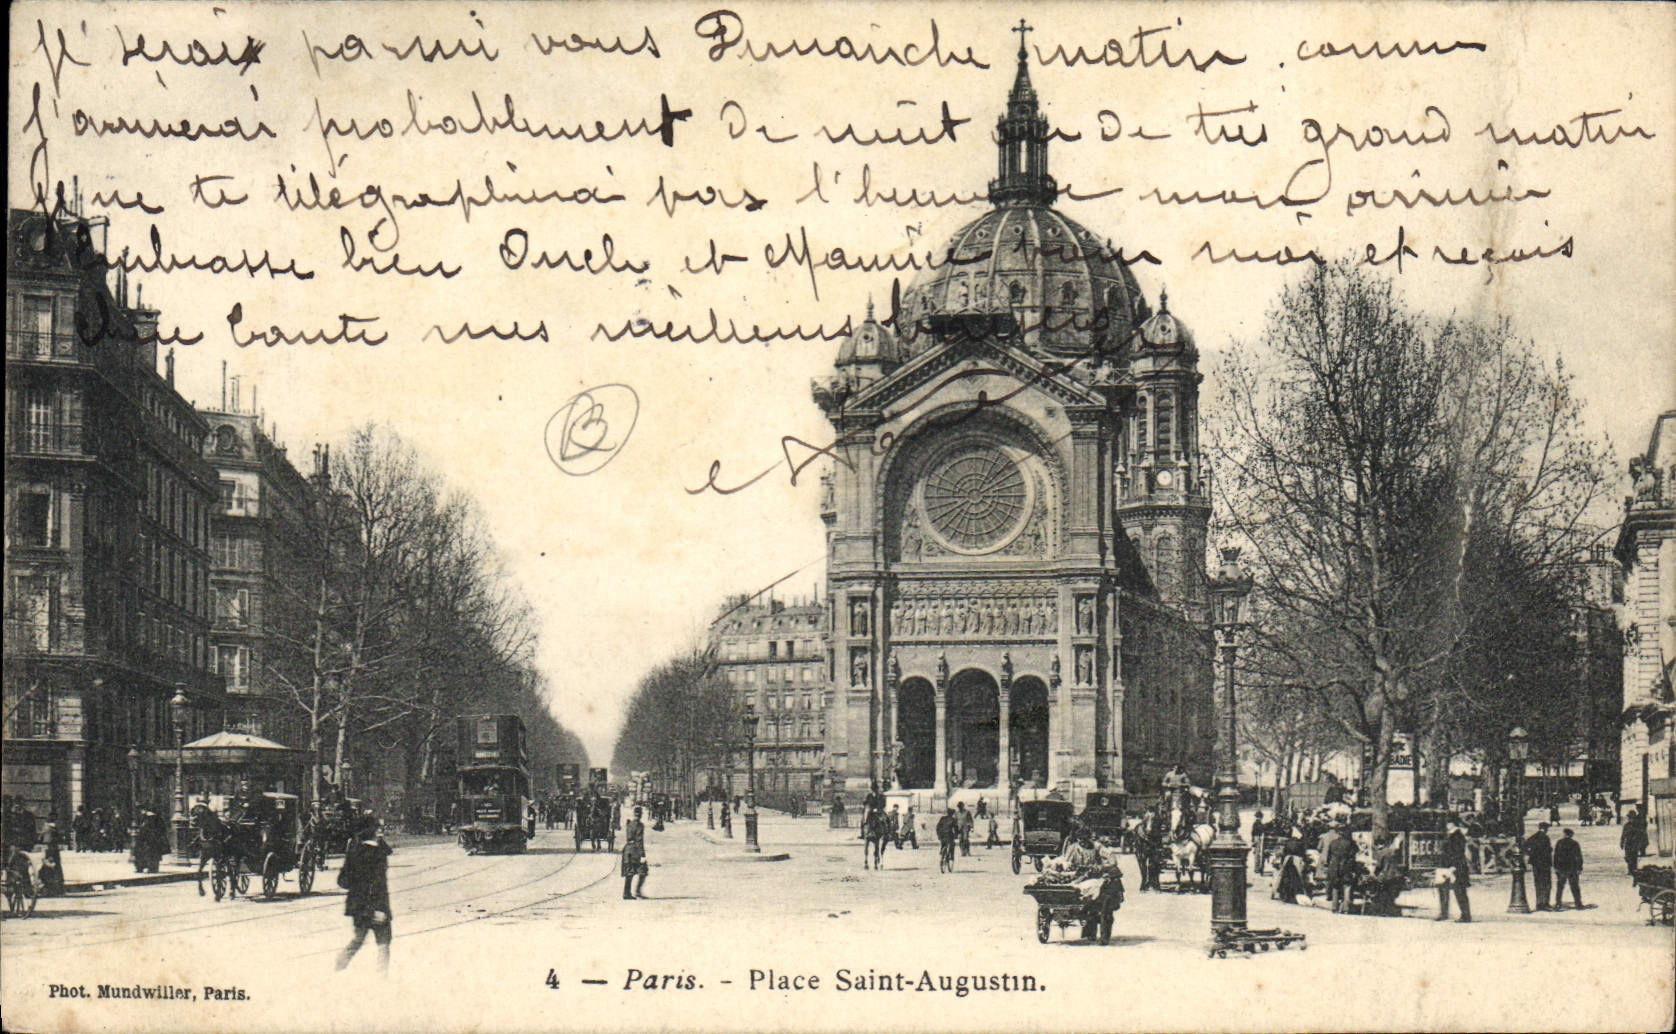 Je serais parmi vous Dimanche matin. comme
j'arriverai probablement de nuit ou de très grand matin
Je ne te télégraphierai pas l'heure de mon arrivée
Embrasse bien Oncle et Maurice pour moi et reçois
chère Tante mes meilleurs baisers
B
BECA
4 — Paris. - Place Saint-Augustin.
Phot. Mundwiller, Paris.